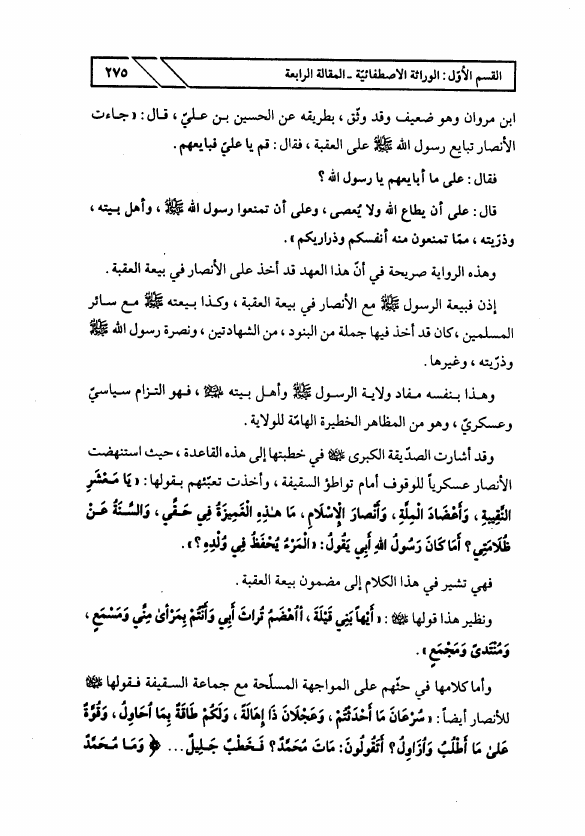 القسم الأوّل : الوراثة الاصطفائيّة ـ المقالة الرابعة ٢٧٥
ابن مروان وهو ضعيف وقد وثّق ، بطريقه عن الحسين بن عليّ ، قال : « جاءت
الأنصار تبايع رسول الله ﷺ على العقبة ، فقال : قم يا عليّ فبايعهم .
فقال : على ما أبايعهم يا رسول الله ؟
قال : على أن يطاع الله ولا يُعصى ، وعلى أن تمنعوا رسول الله ﷺ ، وأهل بيته ،
وذرّيته ، ممّا تمنعون منه أنفسكم وذراريكم » .
وهذه الرواية صريحة في أنّ هذا العهد قد أخذ على الأنصار في بيعة العقبة .
إذن فبيعة الرسول ﷺ مع الأنصار في بيعة العقبة ، وكذا بيعته ﷺ مع سائر
المسلمين ، كان قد أخذ فيها جملة من البنود ، من الشهادتين ، ونصرة رسول الله ﷺ
وذرّيته ، وغيرها .
وهذا بنفسه مفاد ولاية الرسول ﷺ وأهل بيته ، فهو التزام سياسيّ
وعسكريّ ، وهو من المظاهر الخطيرة الهامّة للولاية .
وقد أشارت الصدّيقة الكبرى في خطبتها إلى هذه القاعدة ، حيث استنهضت
الأنصار عسكرياً للوقوف أمام تواطؤ السقيفة ، وأخذت تعبّئهم بقولها : « يا مَعْشَرِ
النَّقِيبةِ ، وَأَعْضَادَ الْمِلَّةِ ، وَأَنْصارَ الْإِسْلامِ ، مَا هٰذِهِ الْغَمِيزَةُ فِي حَقِّي ، وَالسِّنَةُ عَنْ
ظُلَامَتِي ؟ أَمَا كَانَ رَسُولُ اللهِ أَبِي يَقُولُ : « الْمَرْءُ يُحْفَظُ فِي وُلْدِهِ ؟ » .
فهي تشير في هذا الكلام إلى مضمون بيعة العقبة .
ونظير هذا قولها : « أَيْهاً بَنِي قَيْلَةَ ، أَأُهْضَمُ تُراثَ أَبِي وَأَنْتُمْ بِمَرْأىٰ مِنِّي وَمَسْمَعٍ ،
وَمُنْتَدىً وَمَجْمَعٍ » .
وأما كلامها في حثّهم على المواجهة المسلّحة مع جماعة السقيفة فقولها
للأنصار أيضاً : « سُرْعَانَ مَا أَحْدَثْتُمْ ، وَعَجْلَانَ ذَا إِهَالَةً ، وَلَكُمْ طَاقَةٌ بِمَا اُحَاوِلُ ، وَقُوَّةٌ
عَلىٰ مَا أَطْلُبُ وَاُزَاوِلُ ؟ أَتَقُولُونَ : مَاتَ مُحَمَّدٌ ؟ فَخَطْبٌ جَلِيلٌ ... ﴿ وَمَا مُحَمَّدٌ